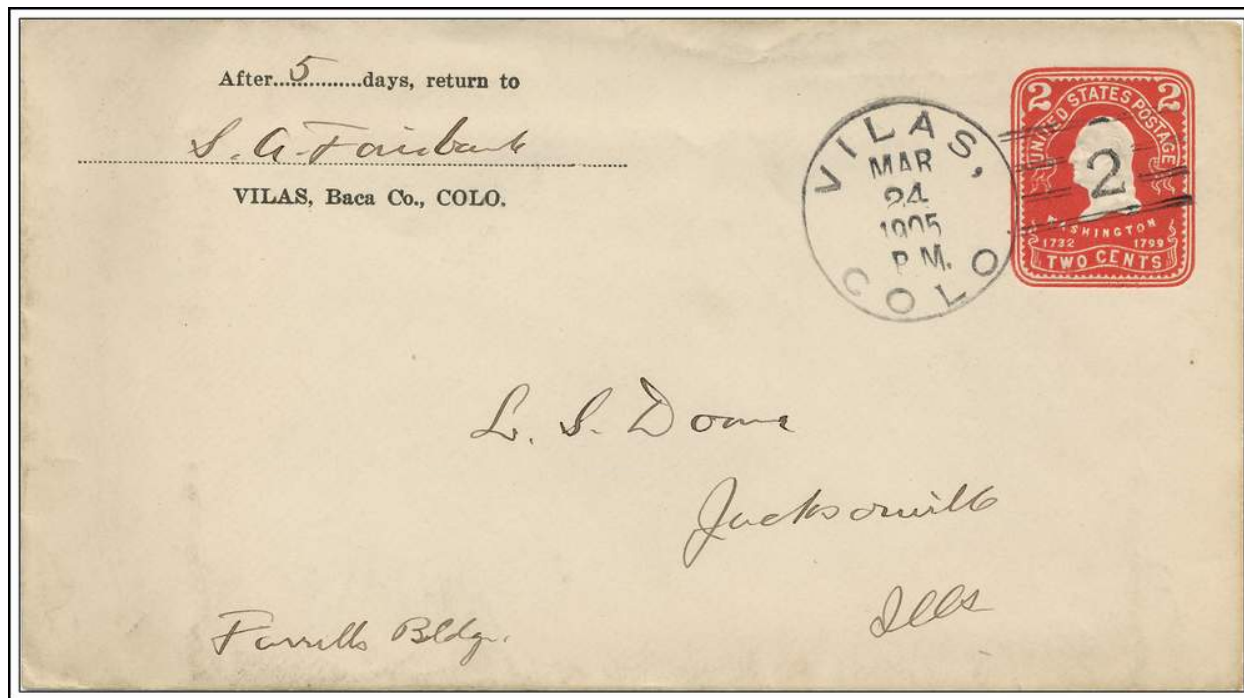 After 5 days, return to
S. A. Fairbank
VILAS, Baca Co., COLO.
VILAS,
MAR
24
1905
P.M.
COLO
2 2
UNITED STATES POSTAGE
2
WASHINGTON
1732 1799
TWO CENTS
L. S. Doane
Jacksonville
Ills
Farrells Bldg.